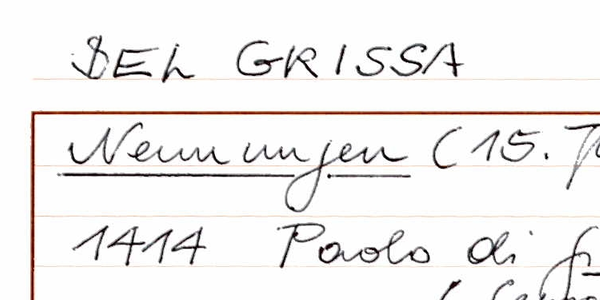 DEL GRISSA
Nennungen (15.
1414 Paolo di